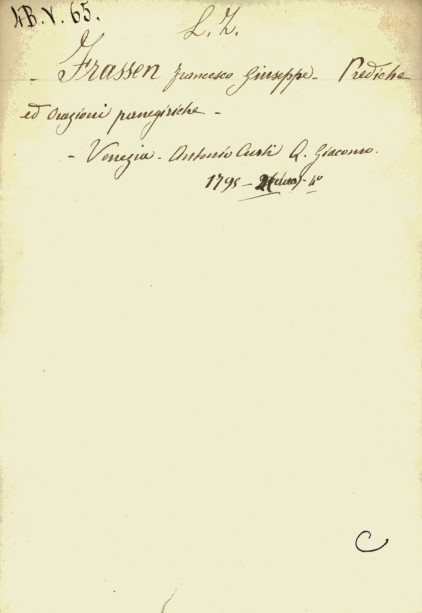 4B.V.65.
L. Z.
- Frassen Francesco Giuseppe - Prediche
ed orazioni panegiriche -
- Venezia - Antonio Curti Q. Giacomo.
1795 - - 4°
C